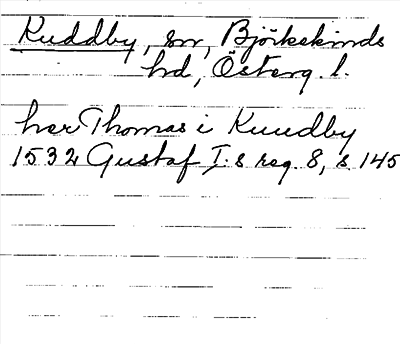 Kuddby, sn, Björkekinds
hd, Österg. l.
her Thomas i Kuudby
1532 Gustaf I:s reg. 8, s. 145